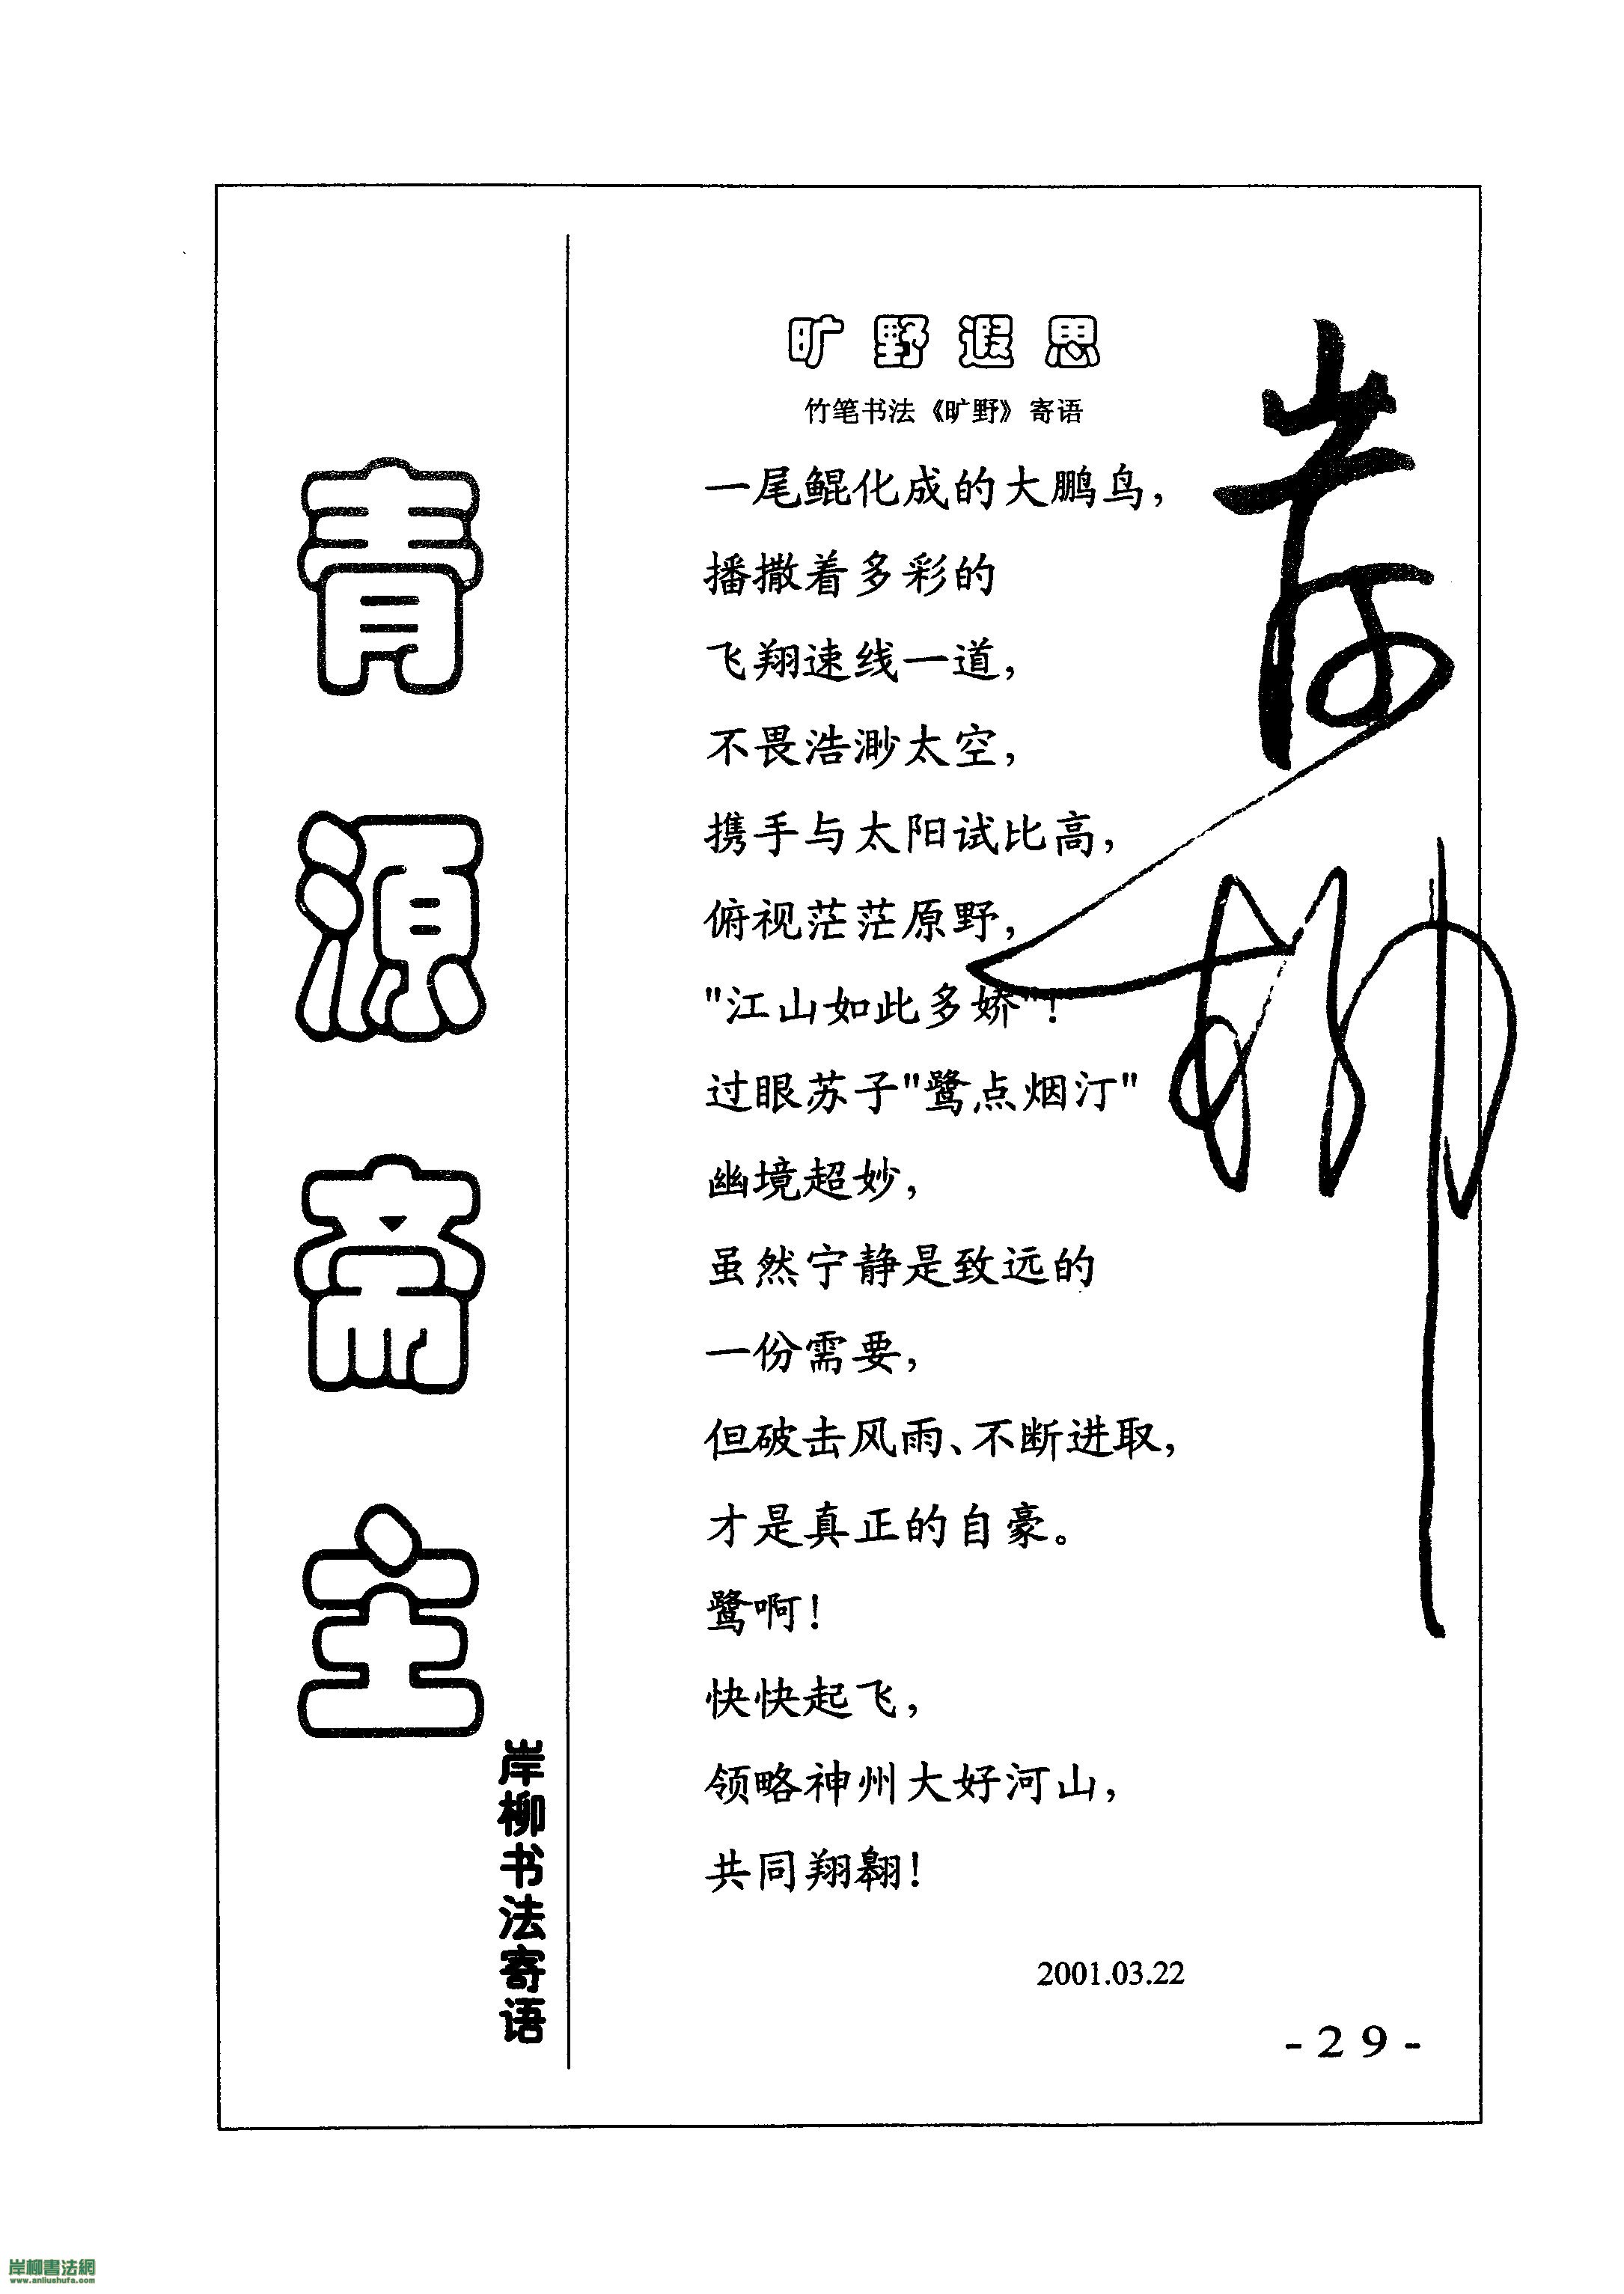 青源斋主
岸柳书法寄语
旷野遐思
竹笔书法《旷野》寄语
一尾鲲化成的大鹏鸟，
播撒着多彩的
飞翔速线一道，
不畏浩渺太空，
携手与太阳试比高，
俯视茫茫原野，
"江山如此多娇"！
过眼苏子"鹭点烟汀"
幽境超妙，
虽然宁静是致远的
一份需要，
但破击风雨、不断进取，
才是真正的自豪。
鹭啊！
快快起飞，
领略神州大好河山，
共同翔翱！
2001.03.22
岸柳
-29-
岸柳書法網
www.anliushufa.com